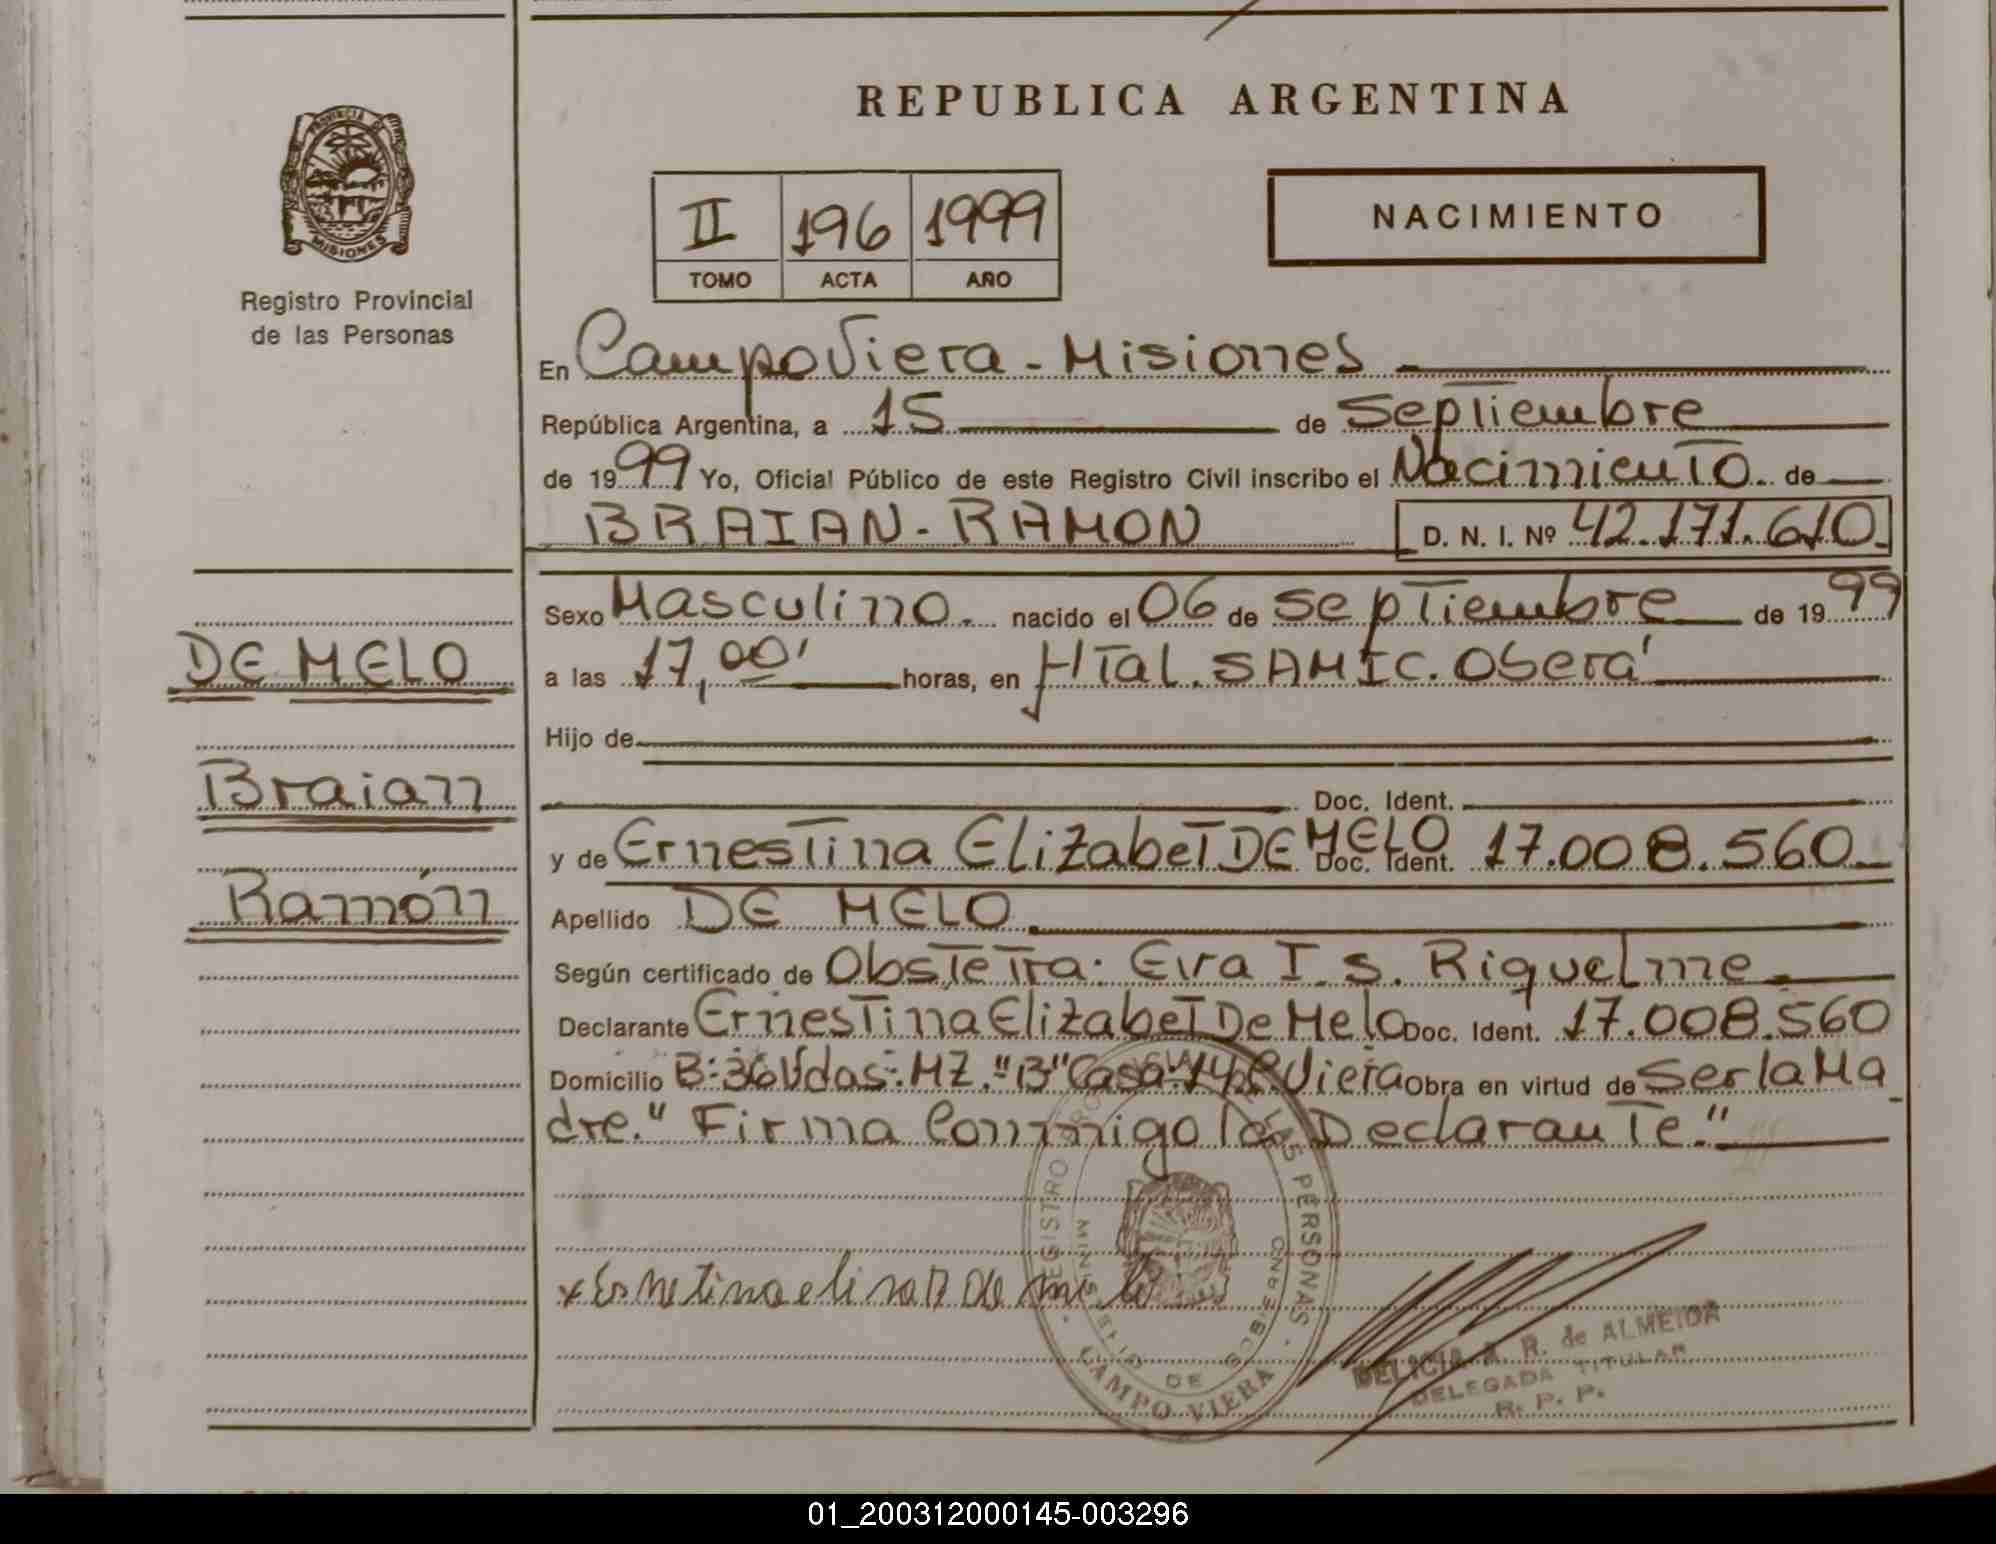 REPUBLICA ARGENTINA
PROVINCIA DE
MISIONES
Registro Provincial
de las Personas
II 196 1999
TOMO ACTA AÑO
NACIMIENTO
En Campo Viera - Misiones
República Argentina, a 15 de Septiembre
de 1999 Yo, Oficial Público de este Registro Civil inscribo el Nacimiento de
BRAIAN - RAMON D. N. I. Nº 42.171.610
Sexo Masculino. nacido el 06 de septiembre de 1999
DE MELO
a las 17,00' horas, en HTal. SAMIC. Oberá
Hijo de
Braian
Doc. Ident.
y de Ernestina Elizabet DE MELO Doc. Ident. 17.008.560
Ramón
Apellido DE MELO
Según certificado de Obstetra: Eva I. S. Riquelme
Declarante Ernestina Elizabet De Melo Doc. Ident. 17.008.560
Domicilio B: 36 Vdas: MZ. "B" Casa: 14 C. Viera Obra en virtud de Ser la Ma
dre." Firma Conmigo la Declarante."
REGISTRO PROVINCIAL DE LAS PERSONAS
MINISTERIO DE GOBIERNO
CAMPO VIERA
DELICIA A. R. de ALMEIDA
DELEGADA TITULAR
R. P. P.
01_200312000145-003296